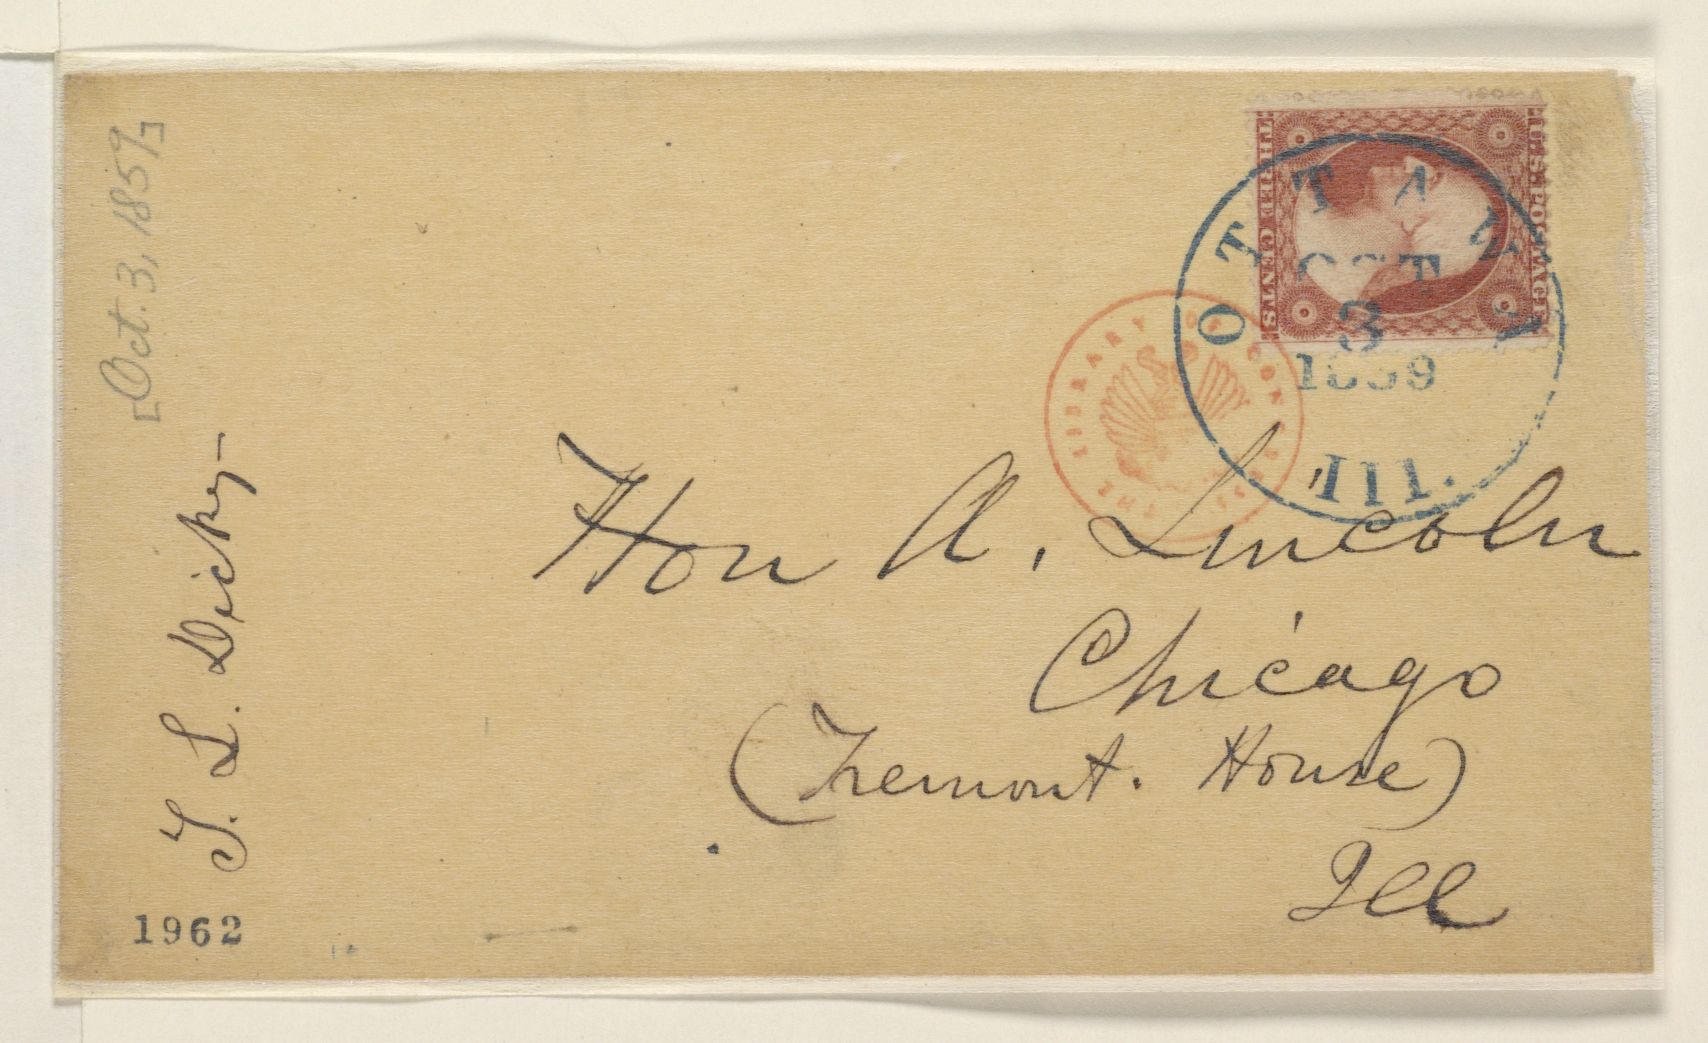 [Oct. 3, 1859]
T. L. Dickey
1962
U.S. POSTAGE
THREE CENTS
OTTAWA
OCT
3
1859
Ill.
THE LIBRARY OF CONGRESS
Hon A. Lincoln
Chicago
(Tremont. House)
Ill